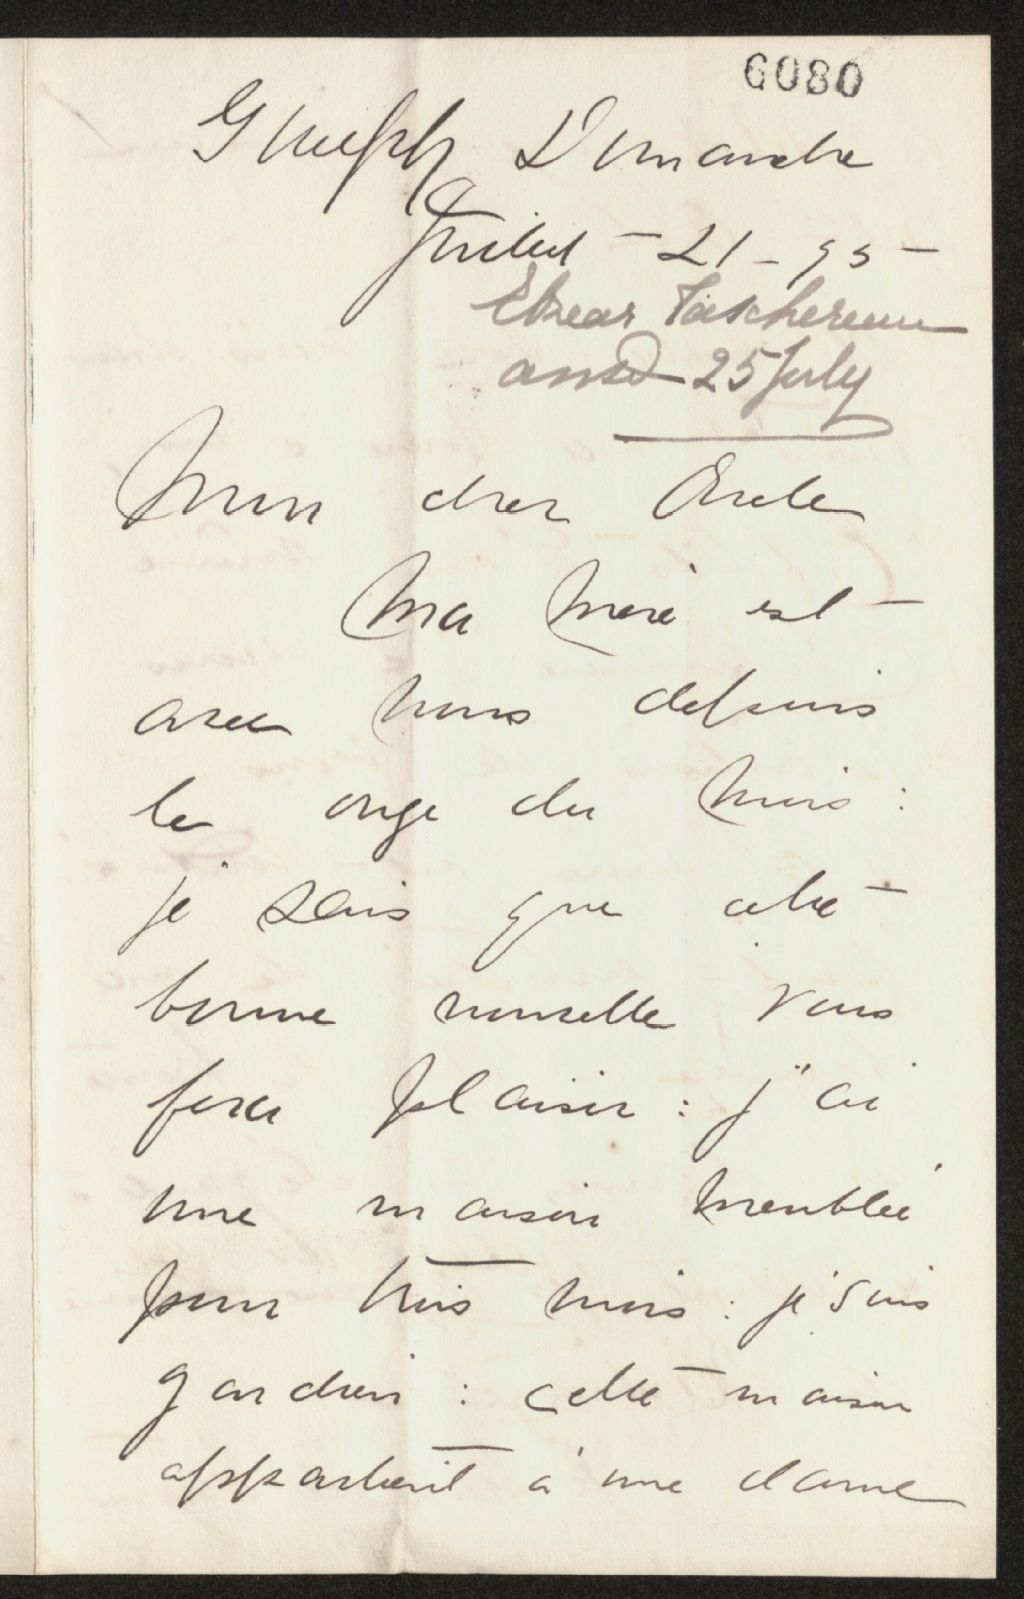 6080
Guelph Dimanche
Juillet - 21 - 95 -
Elzear Taschereau
ansd 25 July
Mon cher Oncle
Ma Mère est
avec nous depuis
le onze du mois :
je sais que cette
bonne nouvelle vous
fera plaisir : j'ai
une maison meublée
pour trois mois : je suis
gardien : cette maison
appartient à une dame